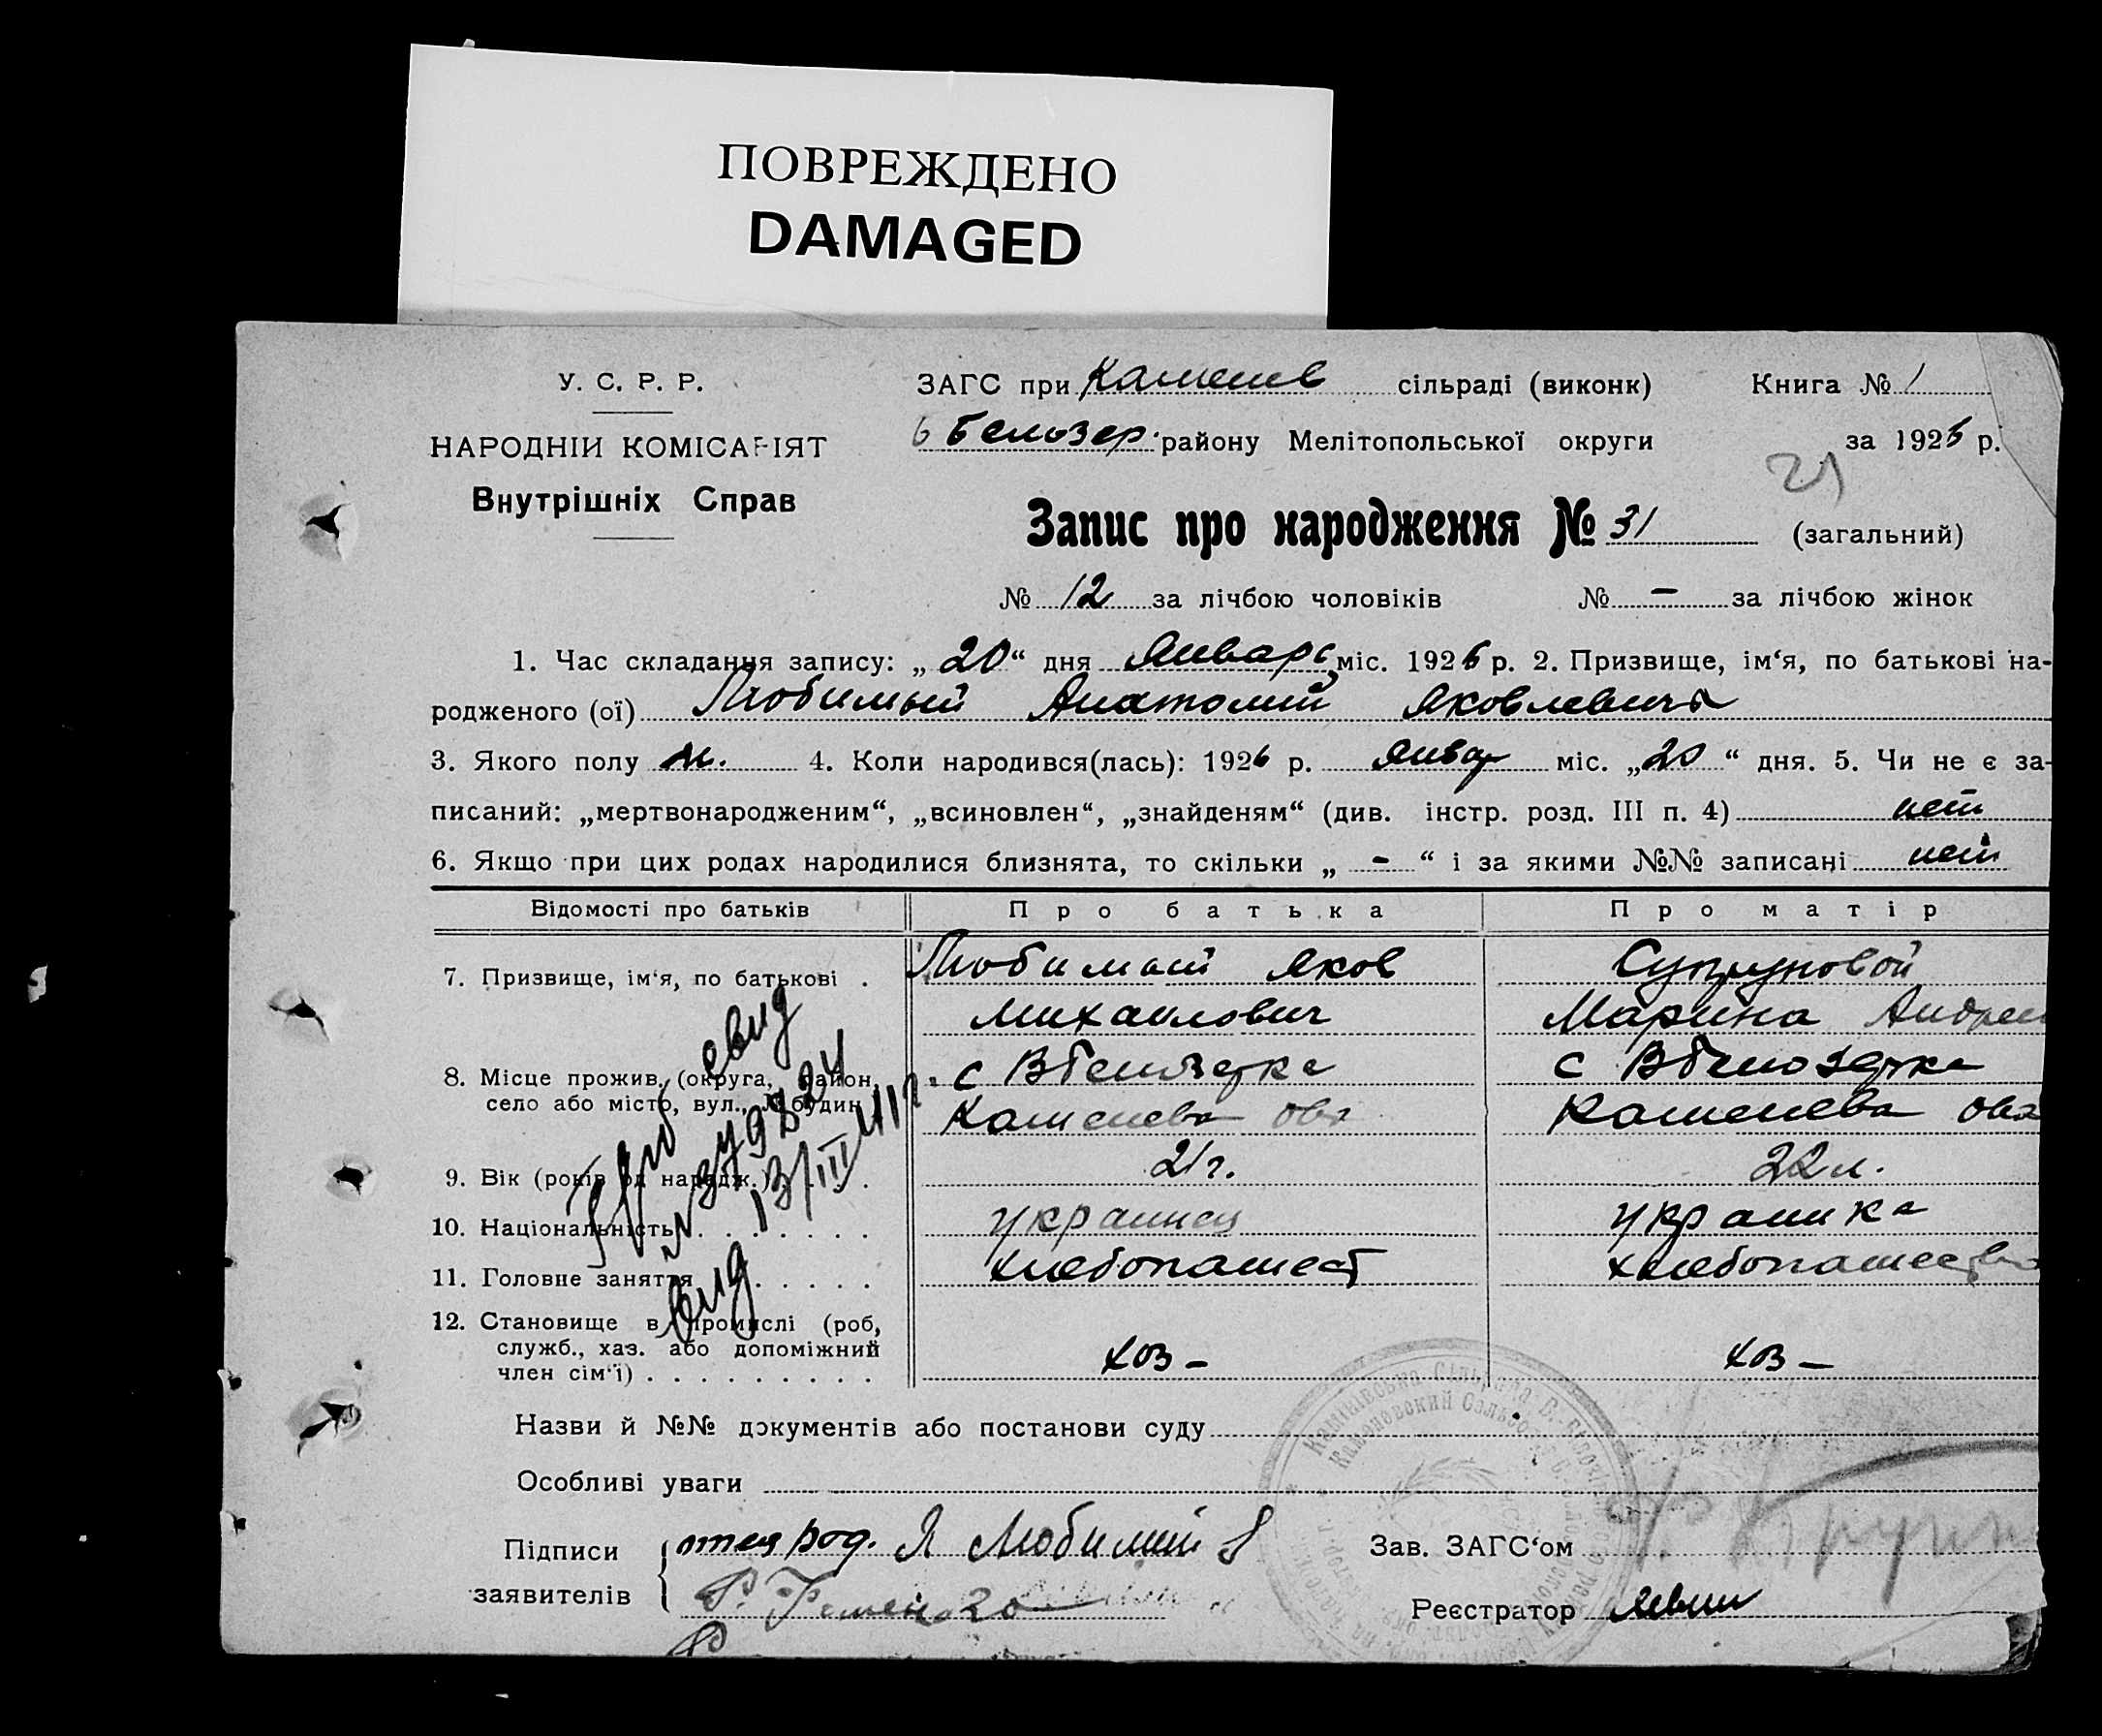 ПОВРЕЖДЕНО
DAMAGED
У. С. Р. Р.
НАРОДНІЙ КОМІСАРІЯТ
Внутрішніх Справ
ЗАГС при Каменев сільраді (виконк) Книга № 1
Белозер. району Мелітопольської округи за 1926 р.
21
Запис про народження № 31 (загальний)
№ 12 за лічбою чоловіків № – за лічбою жінок
1. Час складання запису: „20“ дня Января міс. 1926 р. 2. Призвище, ім‘я, по батькові на-
родженого (ої) Любимый Анатолий Яковлевич
3. Якого полу м. 4. Коли народився(лась): 1926 р. январ міс. „20“ дня. 5. Чи не є за-
писаний: „мертвонародженим“, „всиновлен“, „знайденям“ (див. інстр. розд. III п. 4) нет
6. Якщо при цих родах народилися близнята, то скільки „ - “ і за якими №№ записані нет
Відомості про батьків Про батька Про матір
7. Призвище, ім‘я, по батькові . Любимый Яков Супруновой
Михаилович Марина Андрее
8. Місце прожив. (округа, район, с Вбелозерка с Вбелозерка
село або місто, вул., № будин. Каменева Каменева
9. Вік (років од народж.) . . . 21 г. 22 л.
10. Національність . . . . . . . украинец украинка
11. Головне заняття . . . . . хлебопашест хлебопашество
12. Становище в промислі (роб,
служб., хаз. або допоміжний хоз – хоз –
член сім‘ї) . . . . . . . . .
свид
13/III
Назви й №№ документів або постанови суду
Особливі уваги
Підписи отец род. Я Любимый Зав. ЗАГС‘ом
заявителів Реєстратор